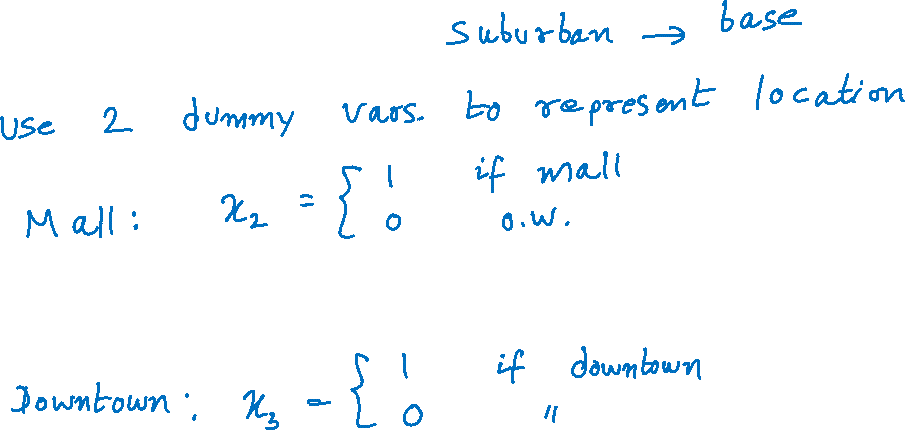 Suburban → base
Use 2 dummy vars. to represent location
Mall: x₂ = { 1 if mall
0 o.w.
Downtown: x₃ = { 1 if downtown
0 "